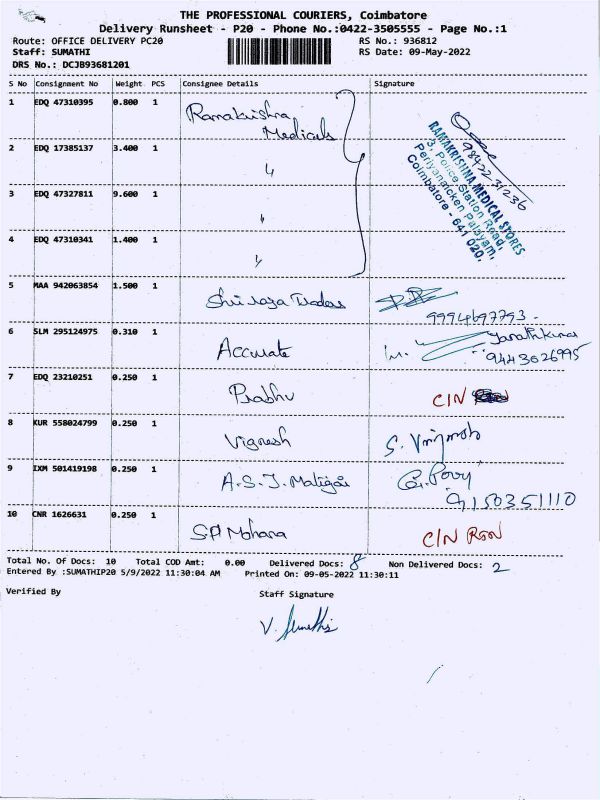 THE PROFESSIONAL COURIERS, Coimbatore
Delivery Runsheet - P20 - Phone No.:0422-3505555 - Page No.:1
Route: OFFICE DELIVERY PC20 RS No.: 936812
Staff: SUMATHI RS Date: 09-May-2022
DRS No.: DCJB93681201
S No Consignment No Weight PCS Consignee Details Signature
1 EDQ 47310395 0.800 1 Ramakrishna
Medicals
2 EDQ 17385137 3.400 1 "
3 EDQ 47327811 9.600 1 "
4 EDQ 47310341 1.400 1 "
98422 31236
RAMAKRISHNA MEDICAL STORES
3, Police Station Road,
Periyanaicken Palayam,
Coimbatore - 641 020.
5 MAA 942063854 1.500 1 Shri raja Traders
9994697793.
6 SLM 295124975 0.310 1 Accurate
9443026995
7 EDQ 23210251 0.250 1 Prabhu CIN
8 KUR 558024799 0.250 1 Vignesh
9 IXM 501419198 0.250 1 A.S.J. Maligai
9150351110
10 CNR 1626631 0.250 1 SP Mohana CIN
Total No. Of Docs: 10 Total COD Amt: 0.00 Delivered Docs: 8 Non Delivered Docs: 2
Entered By :SUMATHIP20 5/9/2022 11:30:04 AM Printed On: 09-05-2022 11:30:11
Verified By Staff Signature
V. Sumathi